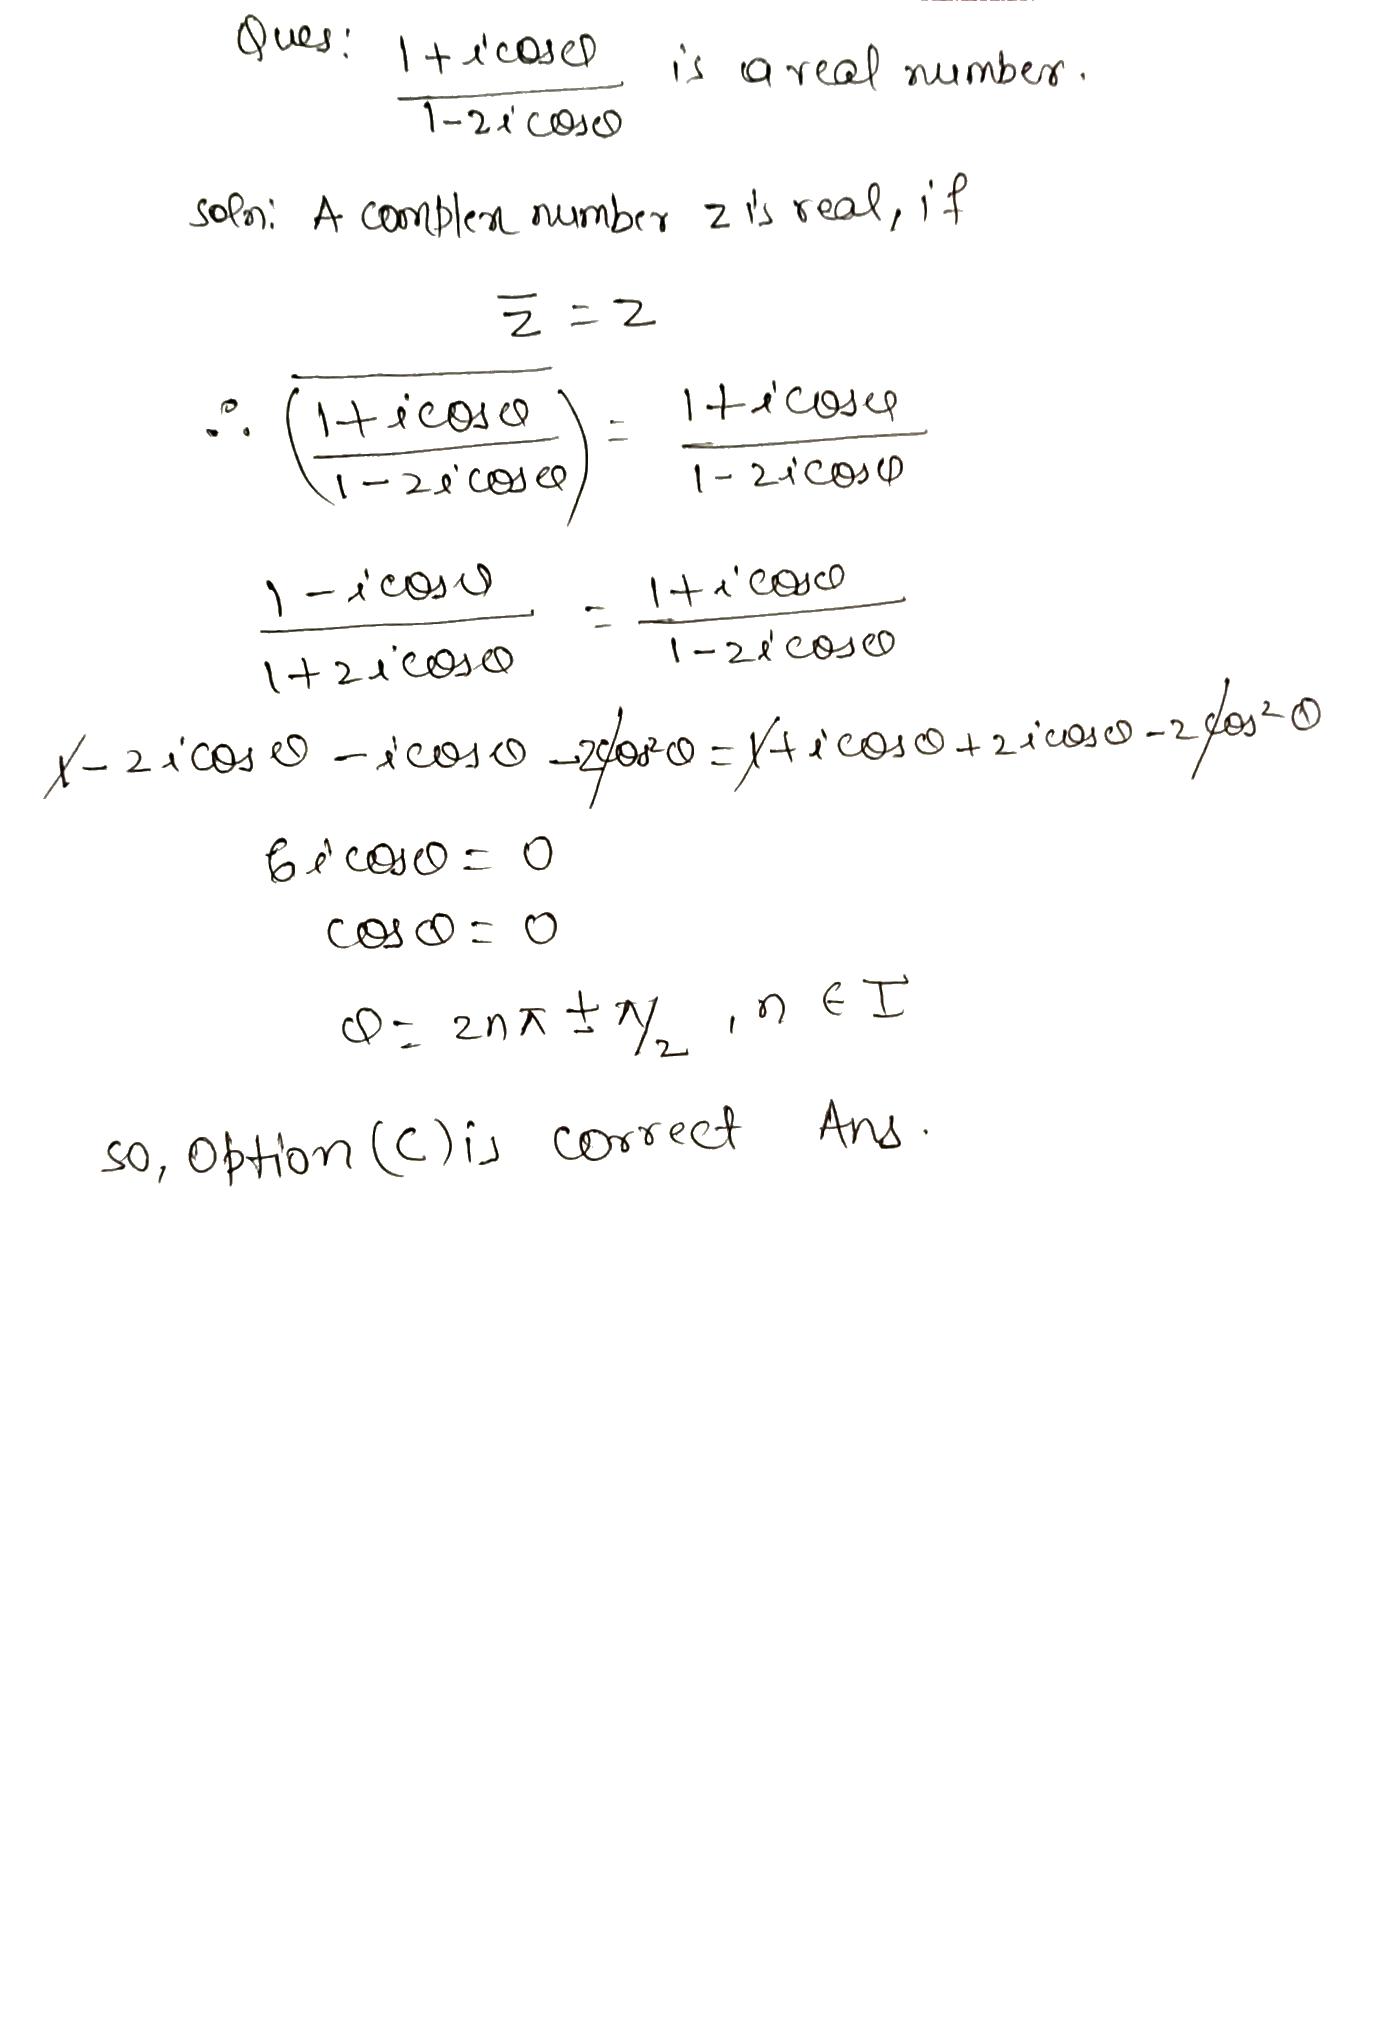 Ques: (1 + i cosθ)/(1 - 2i cosθ) is a real number.
soln: A complex number z is real, if
z̅ = z
∴ \overline{((1 + i cosθ)/(1 - 2i cosθ))} = (1 + i cosθ)/(1 - 2i cosθ)
(1 - i cosθ)/(1 + 2i cosθ) = (1 + i cosθ)/(1 - 2i cosθ)
1 - 2i cosθ - i cosθ - 2cos²θ = 1 + i cosθ + 2i cosθ - 2cos²θ
6i cosθ = 0
cosθ = 0
θ = 2nπ ± π/2, n ∈ I
so, Option (C) is correct Ans.